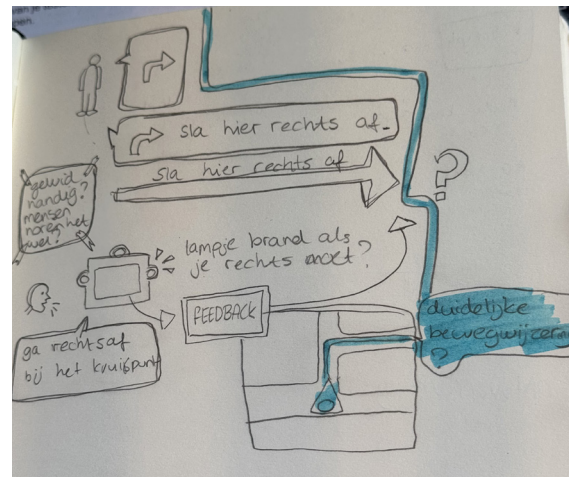 pen.
sla hier rechts af.
sla hier rechts af
?
geluid
handig?
mensen
horen het
wel?
lampje brand als
je rechts moet?
FEEDBACK
ga rechtsaf
bij het kruispunt
duidelijke
bewegwijzering
?